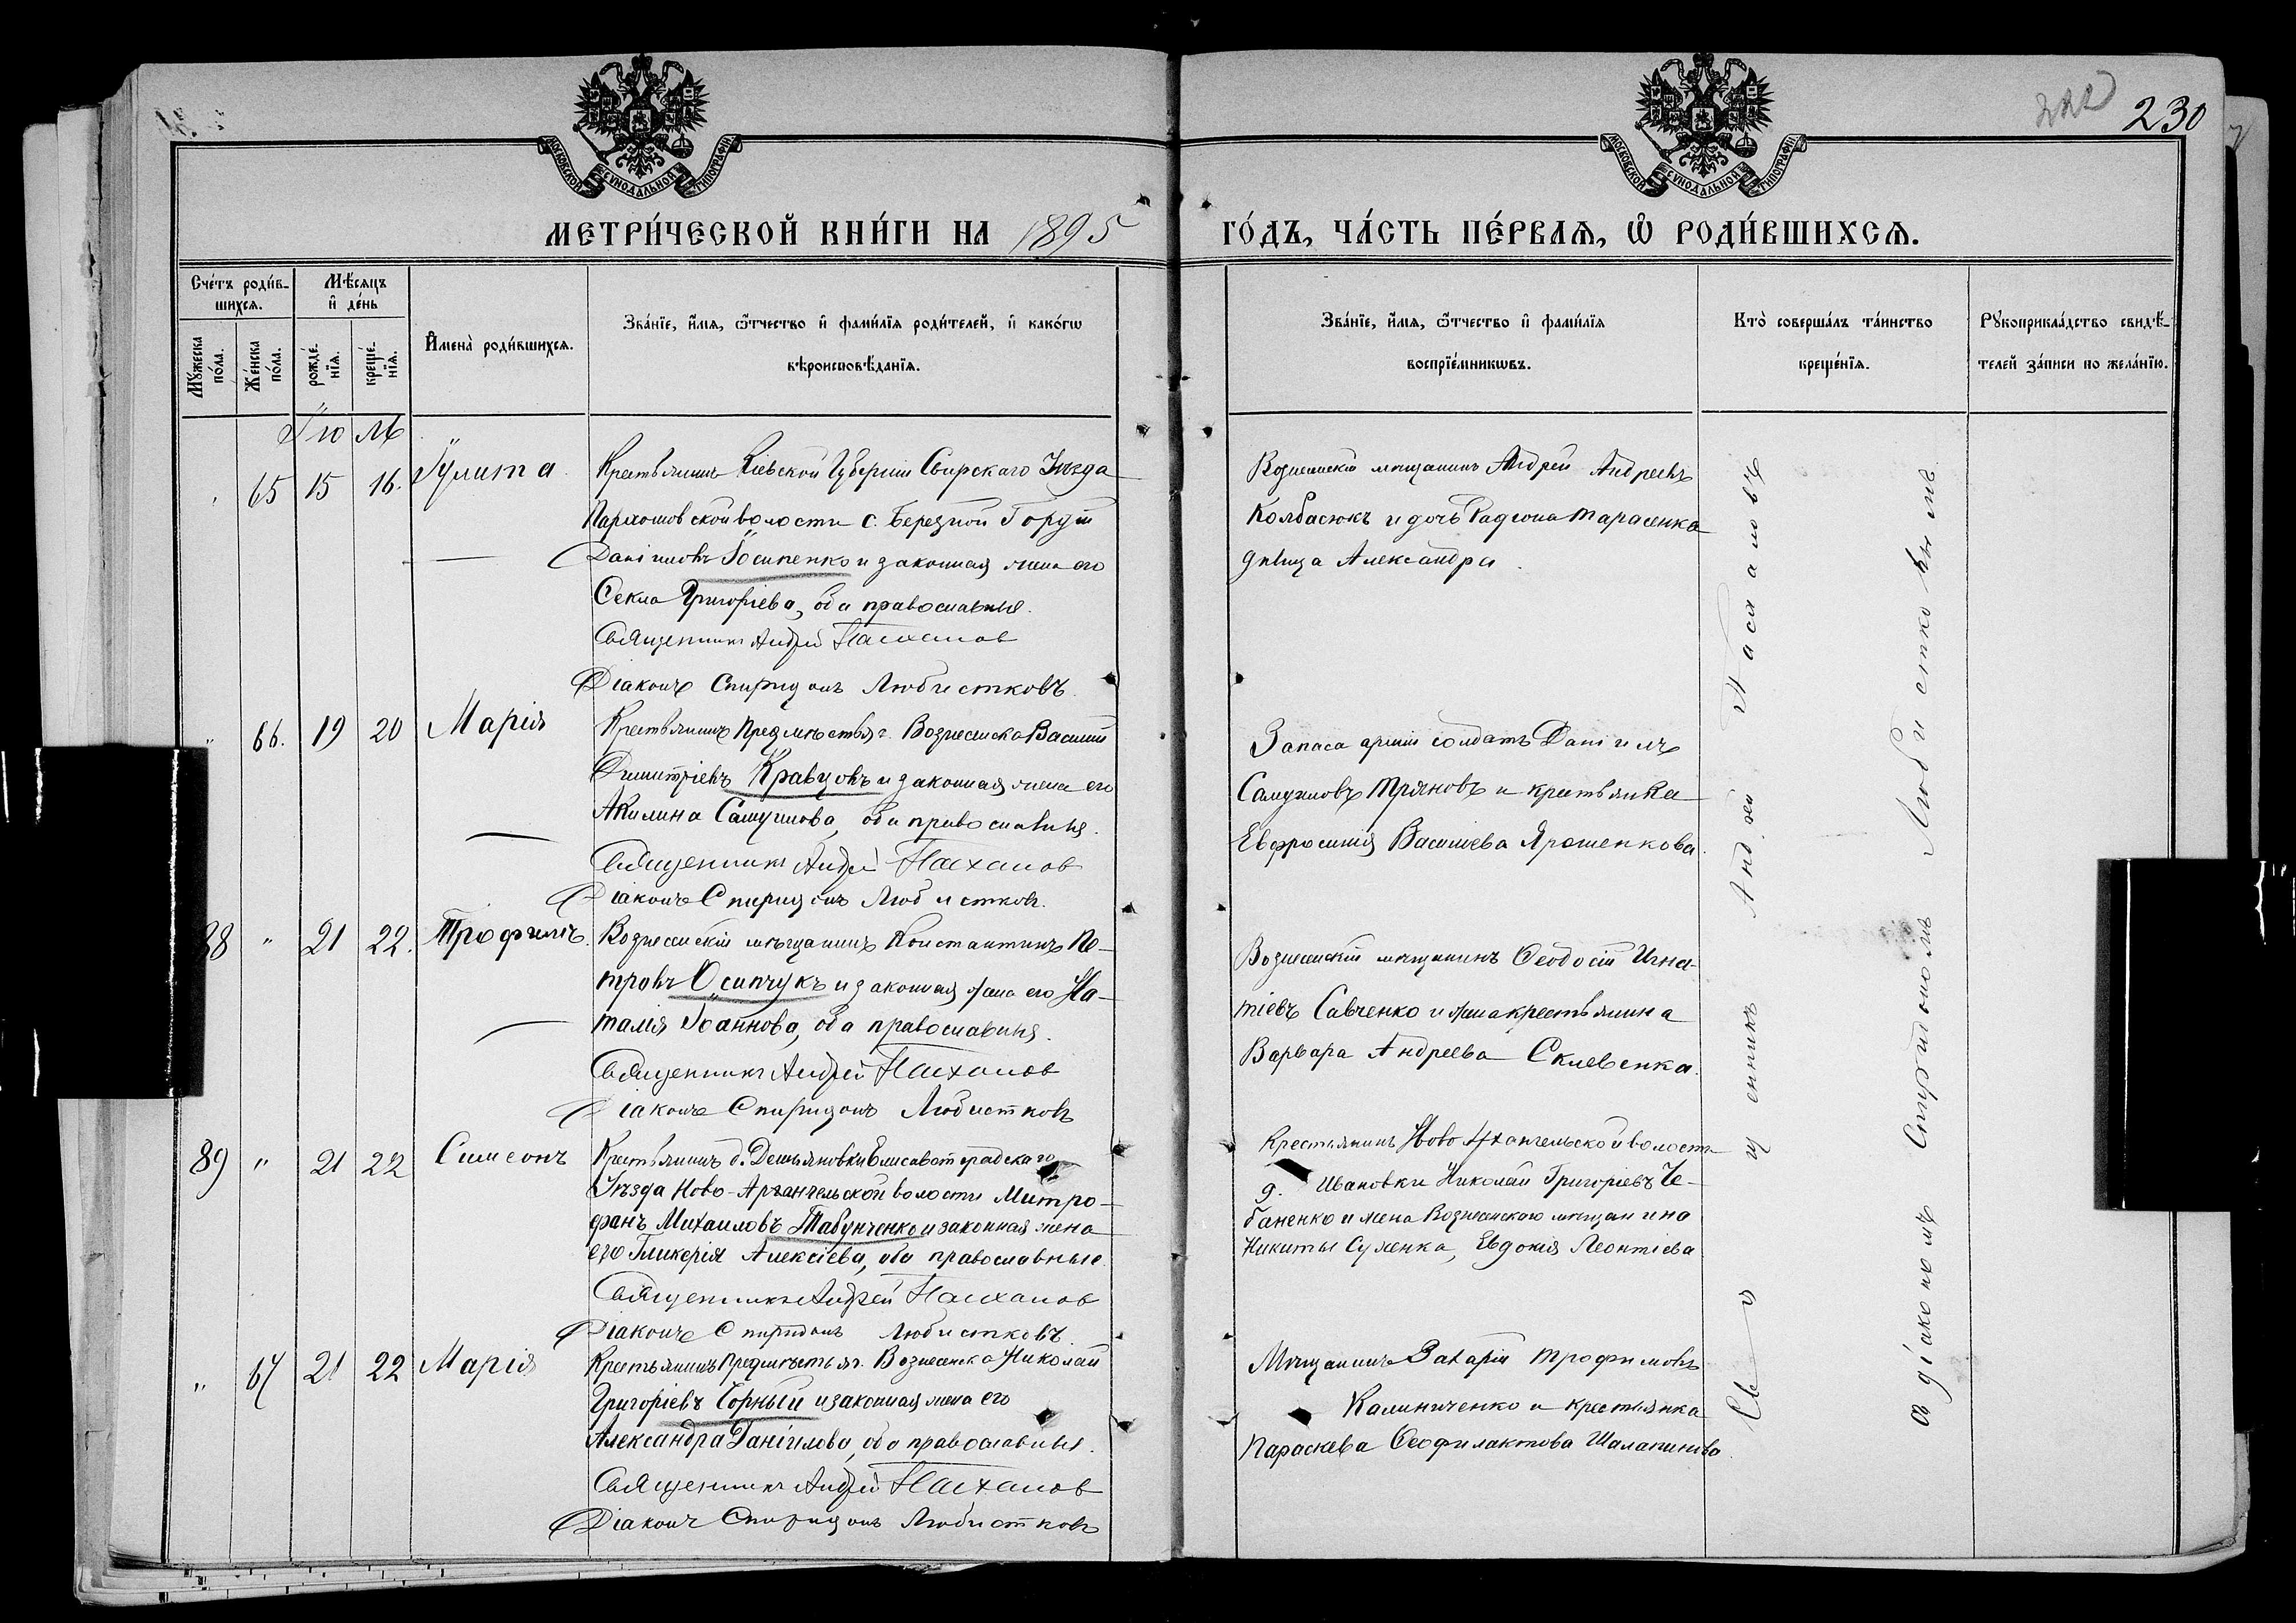 230
МОСКОВСКОЙ СѴНОДАЛЬНОЙ ТИПОГРАФІИ
МОСКОВСКОЙ СѴНОДАЛЬНОЙ ТИПОГРАФІИ
МЕТРИ́ЧЕСКОЙ КНИ́ГИ НА 1895 ГО́ДЪ, ЧА́СТЬ ПЕ́РВАѦ, Ѡ҆ РОДИ́ВШИХСѦ.
Сче́тъ роди́в-
шихсѧ.
Мѣ́сѧцъ
и҆ де́нь
Мꙋ́жеска по́ла.
Же́нска по́ла.
рожде́нїѧ.
креще́нїѧ.
И҆мена̀ роди́вшихсѧ.
Зва́нїе, и҆́мѧ, ѻ҆́тчество и҆ фами́лїѧ роди́телей, и҆ како́гѡ
вѣроисповѣ́данїѧ.
Зва́нїе, и҆́мѧ, ѻ҆́тчество и҆ фами́лїѧ
воспрїе́мникѡвъ.
Кто̀ соверша́лъ та́инство
креще́нїѧ.
Рꙋкоприкла́дство свидѣ́-
телей за́писи по жела́нїю.
Іюль
" 65 15 16. Іулита
Крестьянинъ Кіевской Губерніи Сквирскаго Уѣзда
волости с. Березной
Даніиловъ Іосипенко и законная жена его
Ѳекла Григоріева, оба православные.
Священникъ Андрей
Діаконъ Спиридонъ Любистковъ.
Вознесенскій мѣщанинъ Андрей Андреевъ
Колбасюкъ и дочь Радіона Тарасенка
дѣвица Александра.
" 66. 19 20 Марія
Крестьянинъ предмѣстья г. Вознесенска Василій
Димитріевъ Кравцовъ и законная жена его
Акилина Самуилова, оба православныя.
Священникъ Андрей
Діаконъ Спиридонъ Любистковъ.
Запаса арміи солдатъ Даніилъ
Самуиловъ Тряновъ и крестьянка
Евфросинія Васильева Ярошенкова.
88 " 21 22. Трофимъ.
Вознесенскій мѣщанинъ Константинъ Пе-
тровъ Осипчукъ и законная жена его На-
талія Іоаннова, оба православныя.
Священникъ Андрей
Діаконъ Спиридонъ Любистковъ
Вознесенскій мѣщанинъ Ѳеодосій Игна-
тіевъ Савченко и жена крестьянина
Варвара Андреева
89 " 21 22 Симеонъ
Крестьянинъ д. Демьяновки Елисаветградскаго
Уѣзда Ново-Архангельской волости Митро-
фанъ Михаиловъ Табунченко и законная жена
его Гликерія Алексіева, оба православные.
Священникъ Андрей
Діаконъ Спиридонъ Любистковъ.
Крестьянинъ Ново Архангельской волости
д. Ивановки Николай Григоріевъ Че-
баненко и жена Вознесенскаго мѣщанина
Никиты Суженка, Евдокія Леонтіева
" 67 21 22 Марія
Крестьянинъ предмѣстья г. Вознесенска Николай
Григоріевъ Чорный и законная жена его
Александра Даніилова, оба православныя.
Священникъ Андрей
Діаконъ Спиридонъ Любистковъ
Мѣщанинъ Захарій Трофимовъ
Калиниченко и крестьянка
Параскева Ѳеофилактова
Священникъ Андрей
съ діакономъ Спиридономъ Любистковымъ